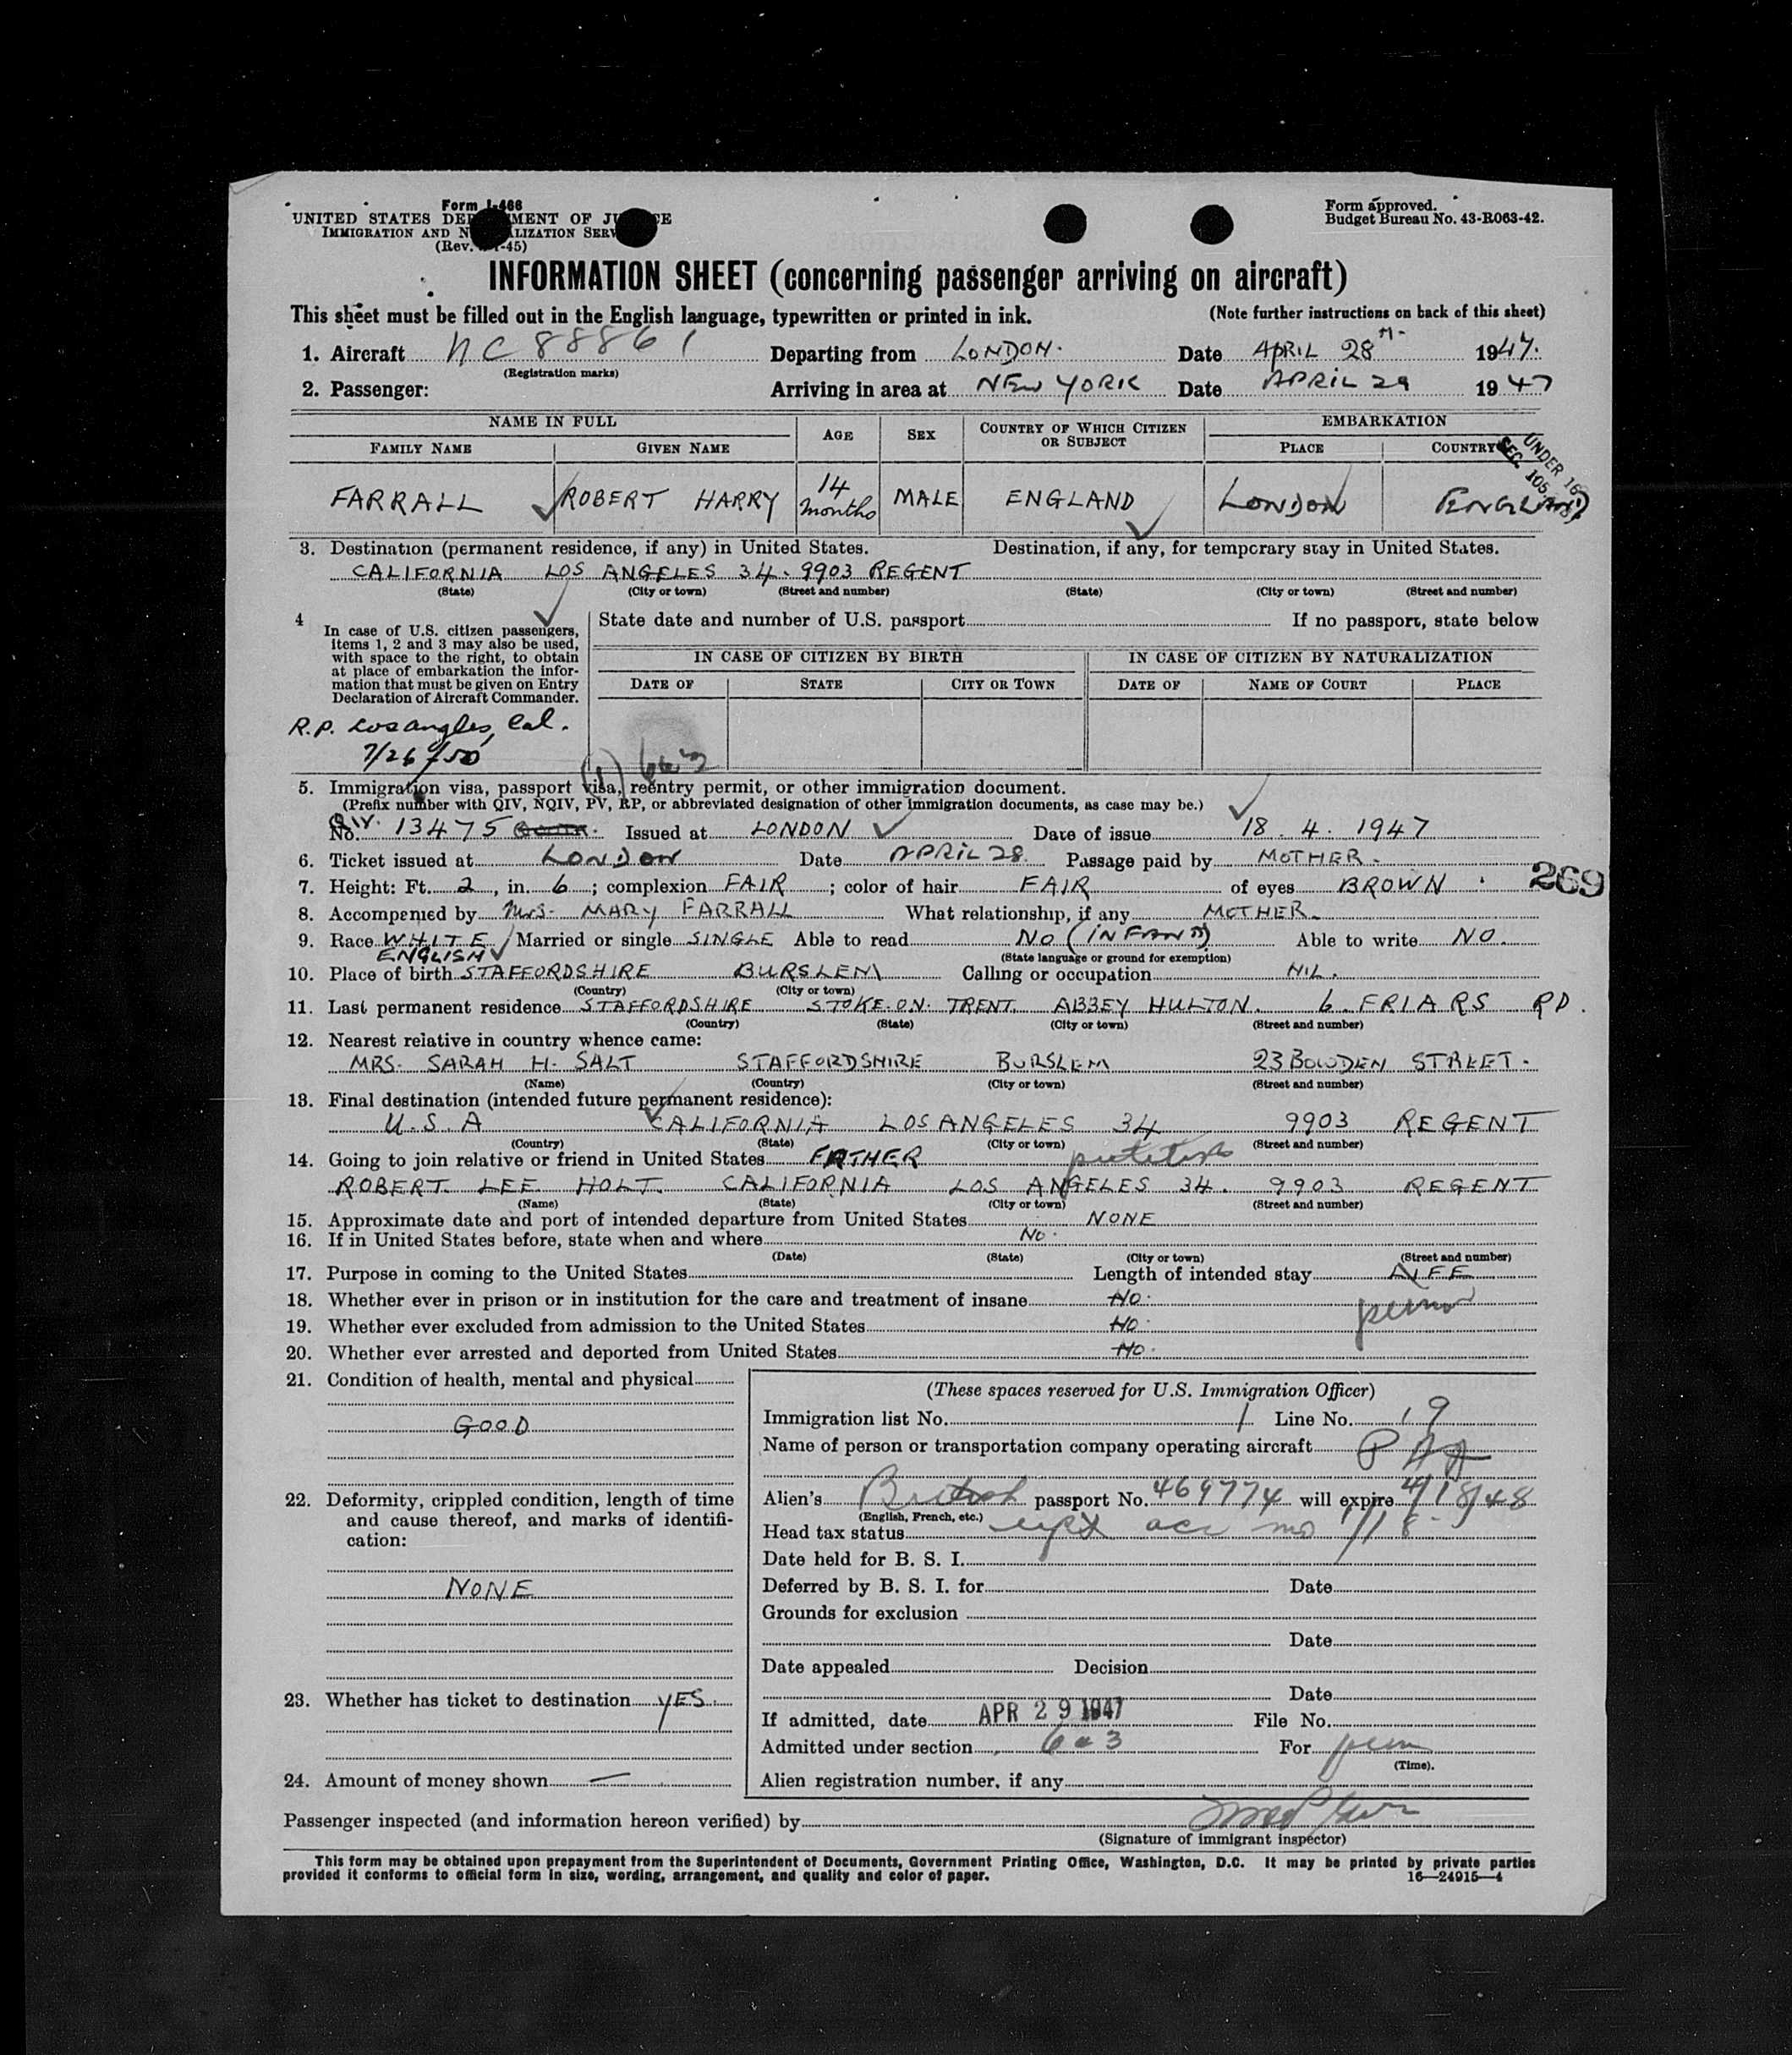 Form I-466
UNITED STATES DEPARTMENT OF JUSTICE
IMMIGRATION AND NATURALIZATION SERVICE
(Rev. -45)
Form approved.
Budget Bureau No. 43-R063-42.
INFORMATION SHEET (concerning passenger arriving on aircraft)
This sheet must be filled out in the English language, typewritten or printed in ink. (Note further instructions on back of this sheet)
1. Aircraft NC 88861 Departing from LONDON. Date APRIL 28TH 1947.
(Registration marks)
2. Passenger: Arriving in area at NEW YORK Date APRIL 29 1947
NAME IN FULL AGE SEX COUNTRY OF WHICH CITIZEN OR SUBJECT EMBARKATION
FAMILY NAME GIVEN NAME PLACE COUNTRY
UNDER 16
SEC. 105
FARRALL ROBERT HARRY 14 months MALE ENGLAND LONDON ENGLAND
3. Destination (permanent residence, if any) in United States. Destination, if any, for temporary stay in United States.
CALIFORNIA LOS ANGELES 34. 9903 REGENT
(State) (City or town) (Street and number) (State) (City or town) (Street and number)
4 In case of U.S. citizen passengers, items 1, 2 and 3 may also be used, with space to the right, to obtain at place of embarkation the information that must be given on Entry Declaration of Aircraft Commander.
State date and number of U.S. passport If no passport, state below
IN CASE OF CITIZEN BY BIRTH IN CASE OF CITIZEN BY NATURALIZATION
DATE OF STATE CITY OR TOWN DATE OF NAME OF COURT PLACE
R.P. Los angles, Cal.
7/26/50
(1) 6a3
5. Immigration visa, passport visa, reentry permit, or other immigration document.
(Prefix number with QIV, NQIV, PV, RP, or abbreviated designation of other immigration documents, as case may be.)
QIV. No. 13475 Issued at LONDON Date of issue 18. 4. 1947
6. Ticket issued at LONDON Date APRIL 28. Passage paid by MOTHER.
7. Height: Ft. 2, in. 6; complexion FAIR; color of hair FAIR of eyes BROWN.
269
8. Accompanied by Mrs. MARY FARRALL What relationship, if any MOTHER.
9. Race WHITE Married or single SINGLE Able to read NO (INFANT) Able to write NO.
ENGLISH (State language or ground for exemption)
10. Place of birth STAFFORDSHIRE BURSLEM Calling or occupation NIL.
(Country) (City or town)
11. Last permanent residence STAFFORDSHIRE STOKE.ON.TRENT. ABBEY HULTON. 6 FRIARS RD.
(Country) (State) (City or town) (Street and number)
12. Nearest relative in country whence came:
MRS. SARAH H. SALT STAFFORDSHIRE BURSLEM 23 BOWDEN STREET.
(Name) (Country) (City or town) (Street and number)
13. Final destination (intended future permanent residence):
U.S.A CALIFORNIA LOS ANGELES 34 9903 REGENT
(Country) (State) (City or town) (Street and number)
14. Going to join relative or friend in United States FATHER putative
ROBERT. LEE. HOLT. CALIFORNIA LOS ANGELES 34. 9903 REGENT
(Name) (State) (City or town) (Street and number)
15. Approximate date and port of intended departure from United States NONE
16. If in United States before, state when and where No.
(Date) (State) (City or town) (Street and number)
17. Purpose in coming to the United States Length of intended stay LIFE
perm
18. Whether ever in prison or in institution for the care and treatment of insane NO.
19. Whether ever excluded from admission to the United States NO.
20. Whether ever arrested and deported from United States NO.
21. Condition of health, mental and physical
GOOD
22. Deformity, crippled condition, length of time and cause thereof, and marks of identification:
NONE
23. Whether has ticket to destination YES.
24. Amount of money shown —
(These spaces reserved for U.S. Immigration Officer)
Immigration list No. 1 Line No. 19
Name of person or transportation company operating aircraft PAA
Alien's British passport No. 469774 will expire 4/18/48
(English, French, etc.)
Head tax status
Date held for B. S. I.
Deferred by B. S. I. for Date
Grounds for exclusion
Date
Date appealed Decision
Date
If admitted, date APR 29 1947 File No.
Admitted under section 6a3 For perm
(Time).
Alien registration number, if any
Passenger inspected (and information hereon verified) by
(Signature of immigrant inspector)
This form may be obtained upon prepayment from the Superintendent of Documents, Government Printing Office, Washington, D.C. It may be printed by private parties
provided it conforms to official form in size, wording, arrangement, and quality and color of paper. 16—24915—4